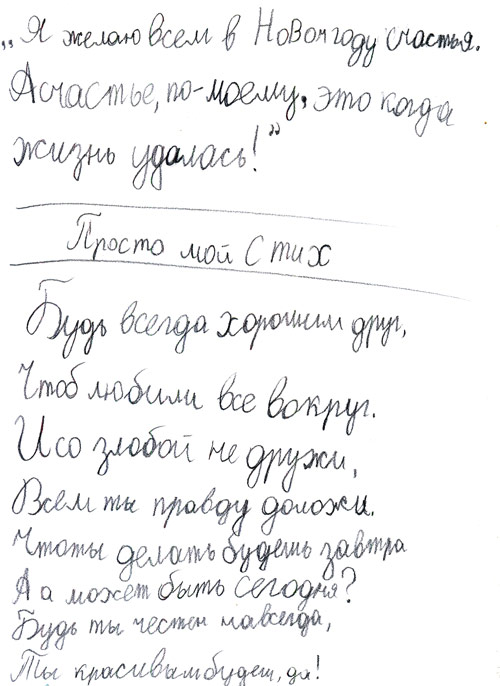 „Я желаю всем в Новом году счастья.
А счастье, по-моему, это когда
жизнь удалась!”
Просто мой Стих
Будь всегда хорошим друг,
Чтоб любили все вокруг.
И со злобой не дружи,
Всем ты правду доложи.
Что ты делать будешь завтра
А а может быть сегодня?
Будь ты честен навсегда,
Ты красивым будеш, да!